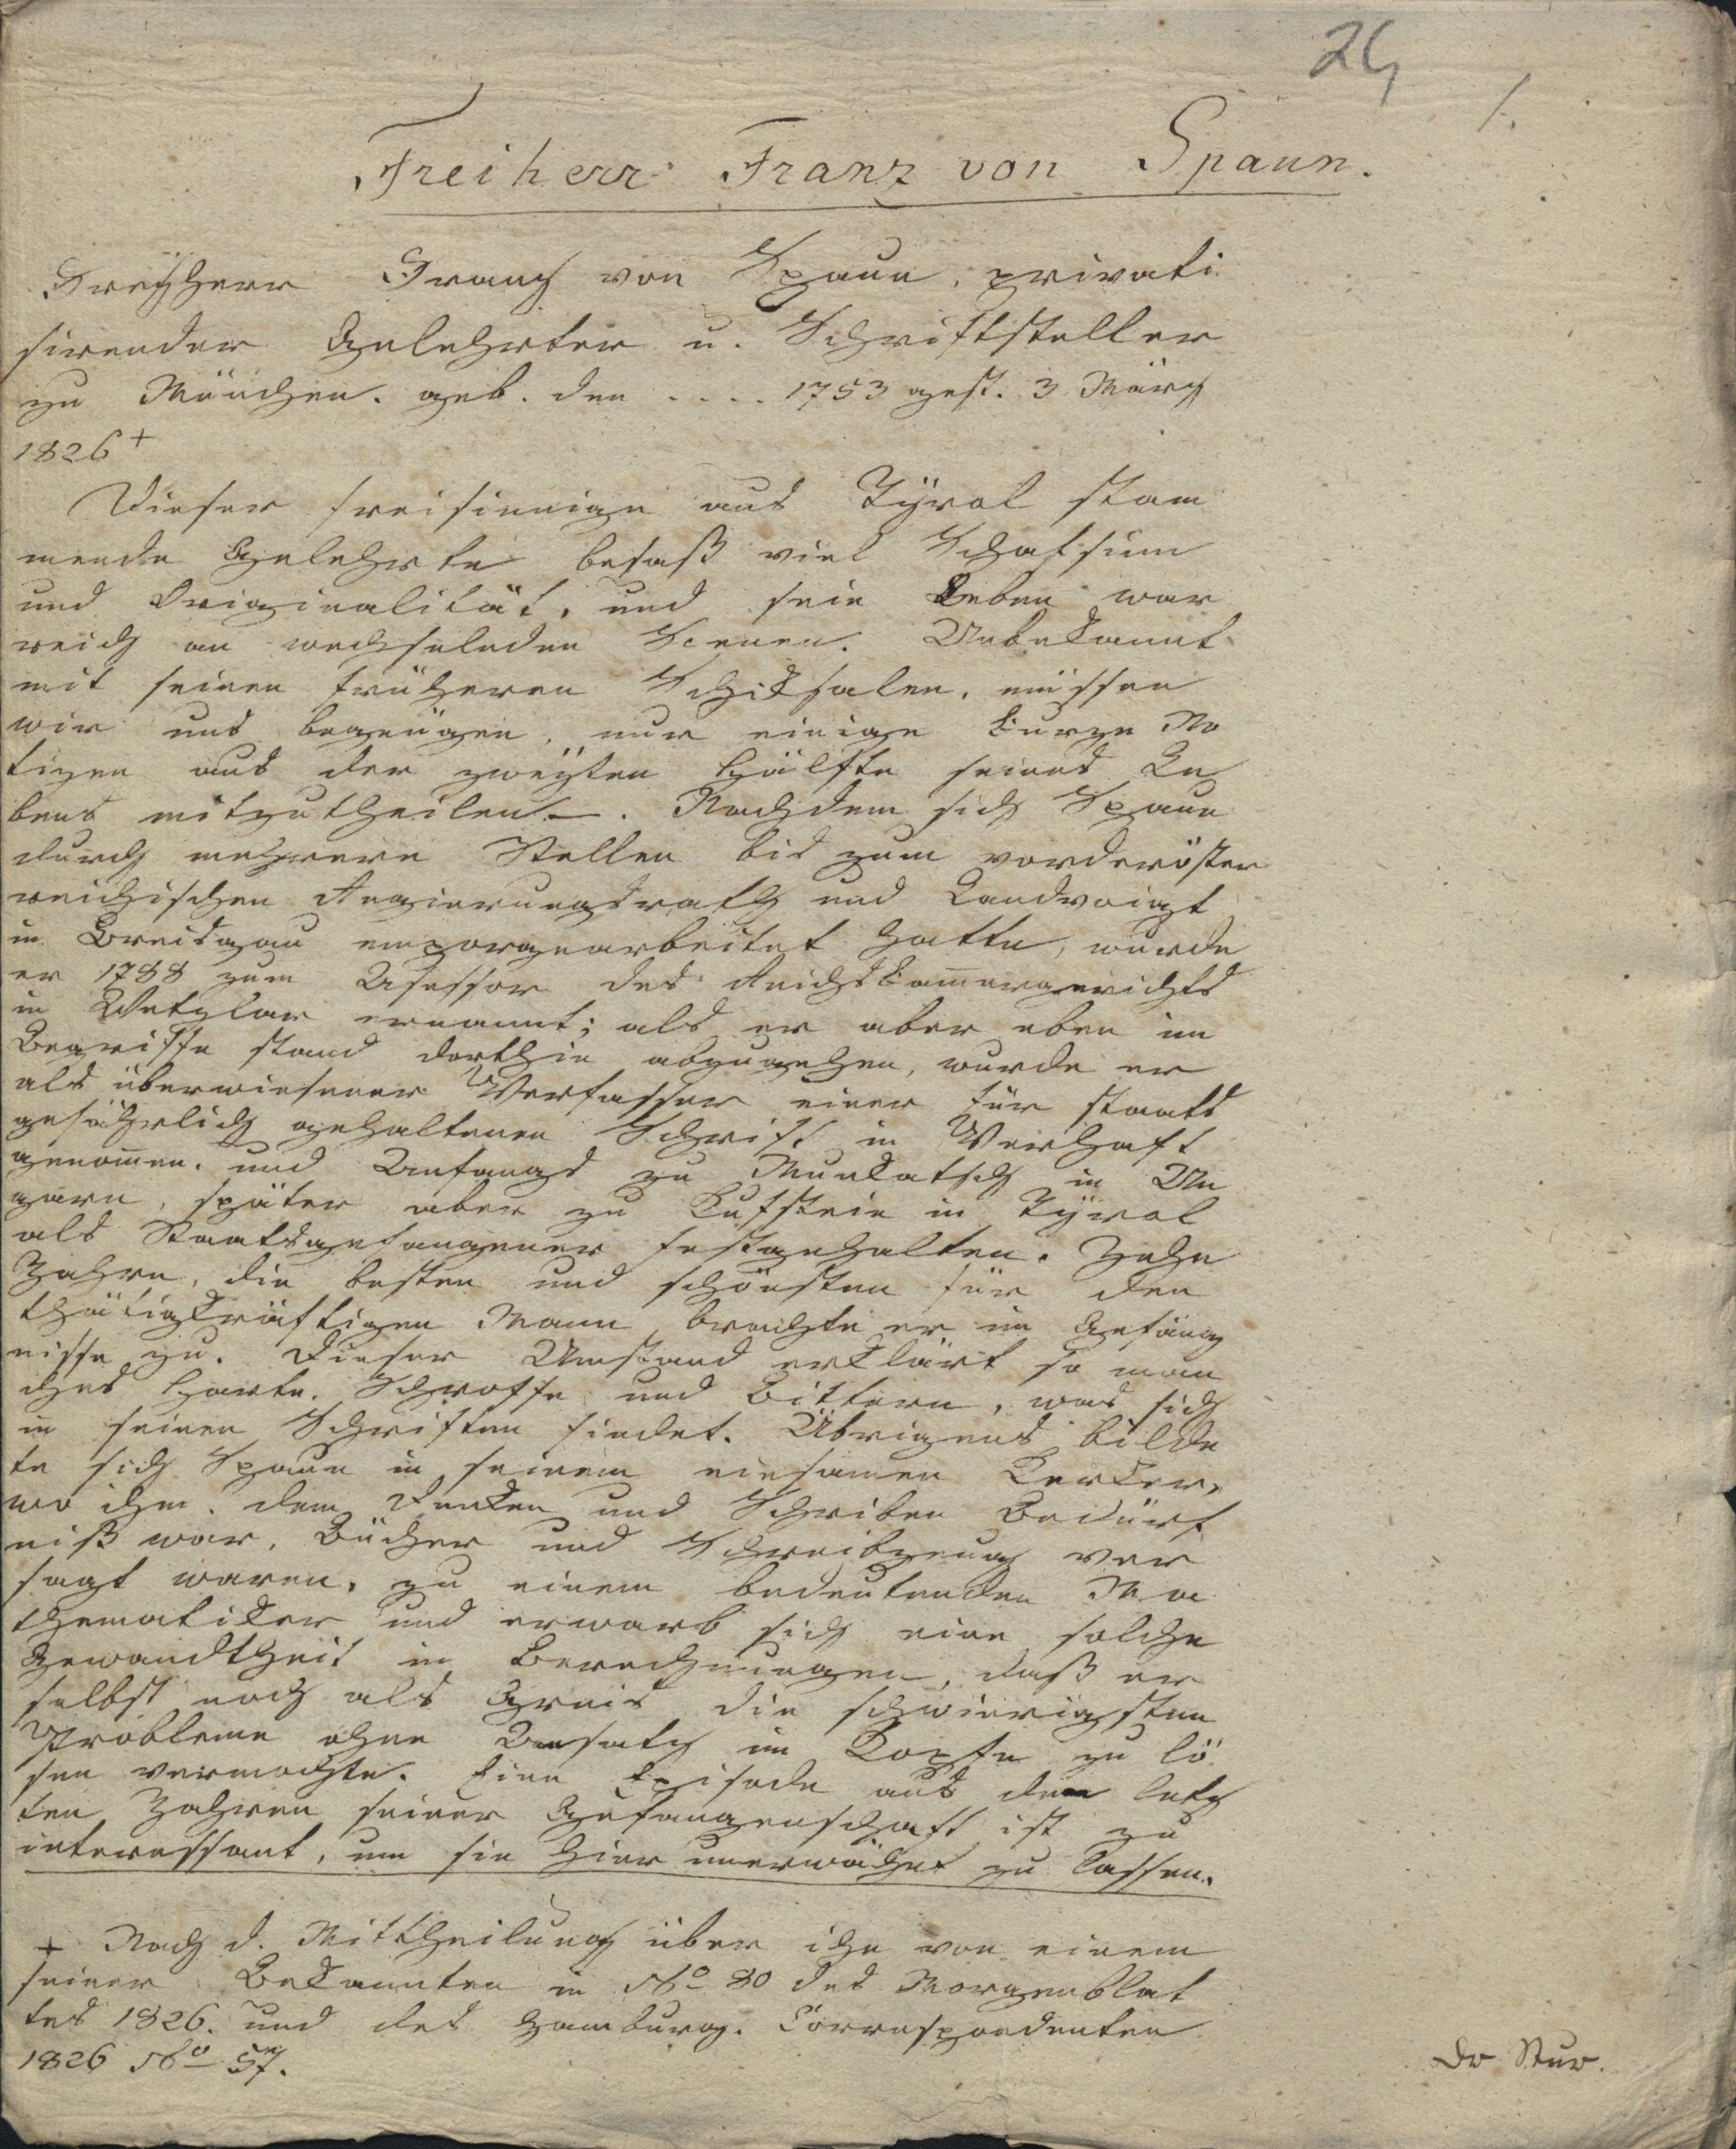 24
1.
Freiherr Franz von Spaun.
Freÿherr Franz von Spaun, privati
sirender Gelehrter u. Schriftsteller
zu München. geb. den .... 1753 gest. 3 März
1826+
Dieser freisinnige aus Tÿrol stam
mende Gelehrte besaß viel Schafsinn
und Originalität, und sein Leben war
reich an wechselnden Scenen. Unbekannt
mit seinen früheren Schiksalen, müssen
wir uns begnügen, nur einige kurze No
tizen aus der zweÿten Hälfte seines Le
bens mitzutheilen –. Nachdem sich Spaun
durch mehrere Stellen bis zum vorderöster
reichischen Regierungsrath und Landvoigt
in Breisgau emporgearbeitet hatte, wurde
er 1788 zum Asessor des Reichskam̄ergerichts
in Wetzlar ernannt; als er aber eben im
Begriffe stand dorthin abzugehen, wurde er
als überwiesener Verfasser einer für staats
gefährlich gehaltenen Schrift in Verhaft
genom̄en. und Anfangs zu Munkatsch in Un
garn, später aber zu Kufstein in Tÿrol
als Staatsgefangener festgehalten. Zehn
Jahre, die besten und schönsten für den
thätigkräftigen Mann brachte er im Gefäng
nisse zu. Dieser Umstand erklärt so man
ches Harte, Schroffe und Bittere, was sich
in seinen Schriften findet. Übrigens bilde
te sich Spaun in seinem einsamen Kerker,
wo ihm, dem Denken und Schriben Bedürf
niß war, Bücher und Schreibzeug ver
sagt waren, zu einem bedeutenden Ma
thematiker und erwarb sich eine solche
Gewandtheit in Berechnungen, daß er
selbst noch als Greis die schwierigsten
Probleme ohne Ansatz im Kopfe zu lö
sen vermochte. Eine Episode aus den letz
ten Jahren seiner Gefangenschaft ist zu
interessant, um sie hier unerwähnt zu lassen.
+ Nach d. Mittheilung über ihn von einem
seiner Bekannten in No 80 des Morgenblat
tes 1826. und des Hamburg. Correspondenten
1826 No 57.
Dr Nur.